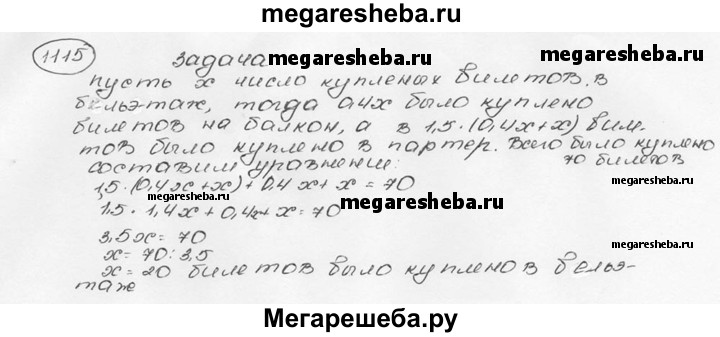 megaresheba.ru
1115 задача megaresheba.ru megaresheba.ru
пусть x число купленых билетов в
бельэтаж, тогда 0,4x было куплено
билетов на балкон, а в 1,5·(0,4x+x) бил.
тов было куплено в партер. Всего было куплено
70 билетов
составим уравнение:
1,5·(0,4x+x)+0,4x+x=70
megaresheba.ru megaresheba.ru
1,5·1,4x+0,4x+x=70
megaresheba.ru
3,5x=70
x=70:3,5
x=20 билетов было куплено в бельэ-
таже
megaresheba.ru
Мегарешеба.ру